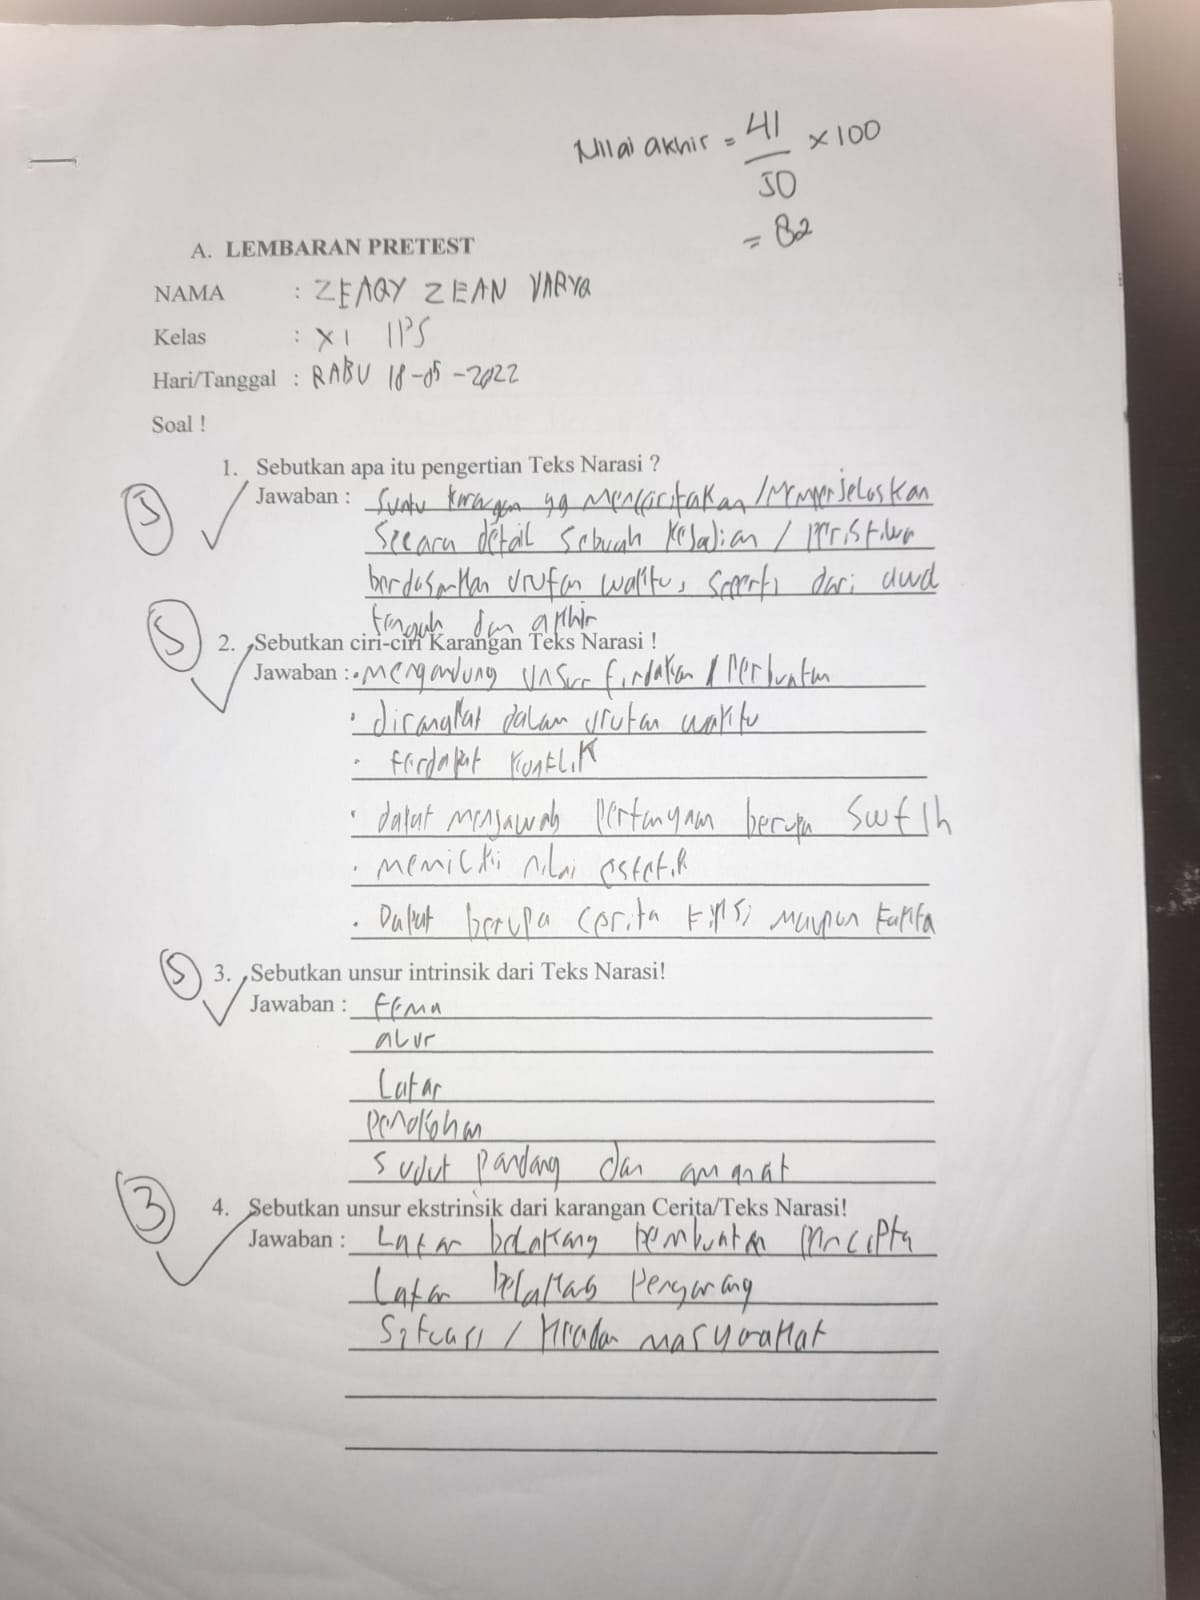 Nilai akhir = 41/50 × 100
= 82
A. LEMBARAN PRETEST
NAMA : ZEAQY ZEAN VARYA
Kelas : XI IPS
Hari/Tanggal : RABU 18-05-2022
Soal !
1. Sebutkan apa itu pengertian Teks Narasi ?
5
Jawaban : Suatu karangan yg menceritakan/Memperjelaskan
Secara detail sebuah kejadian / peristiwa
berdasarkan urutan waktu, seperti dari awal
tengah dan akhir
5
2. Sebutkan ciri-ciri Karangan Teks Narasi !
Jawaban : • mengandung unsur tindakan / perbuatan
• dirangkat dalam urutan waktu
• terdapat konflik
• dapat menjawab pertanyaan berupa 5w + 1h
• memiliki nilai estetik
• Dapat berupa cerita fiksi maupun fakta
5
3. Sebutkan unsur intrinsik dari Teks Narasi!
Jawaban : tema
alur
Latar
penokohan
sudut pandang dan amanat
3
4. Sebutkan unsur ekstrinsik dari karangan Cerita/Teks Narasi!
Jawaban : Latar belakang pembuatan pencipta
Latar belakang pengarang
Situasi / keadaan masyarakat